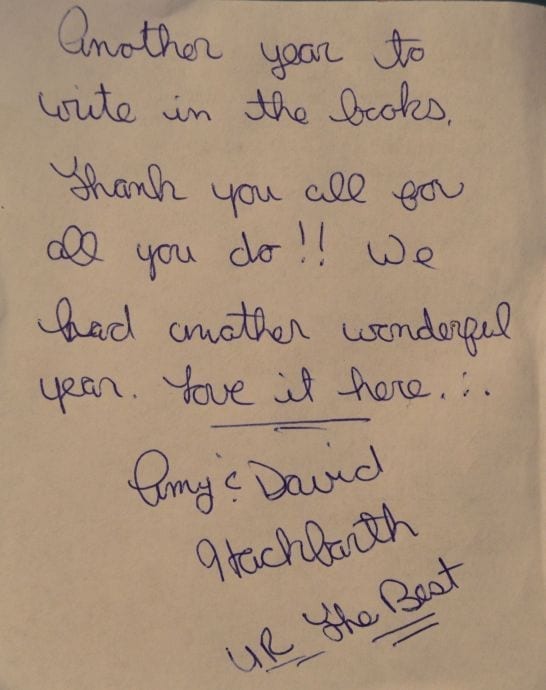 Another year to
write in the books.
Thank you all for
all you do!! We
had another wonderful
year. Love it here...
Amy & David
Hackbarth
UR The Best